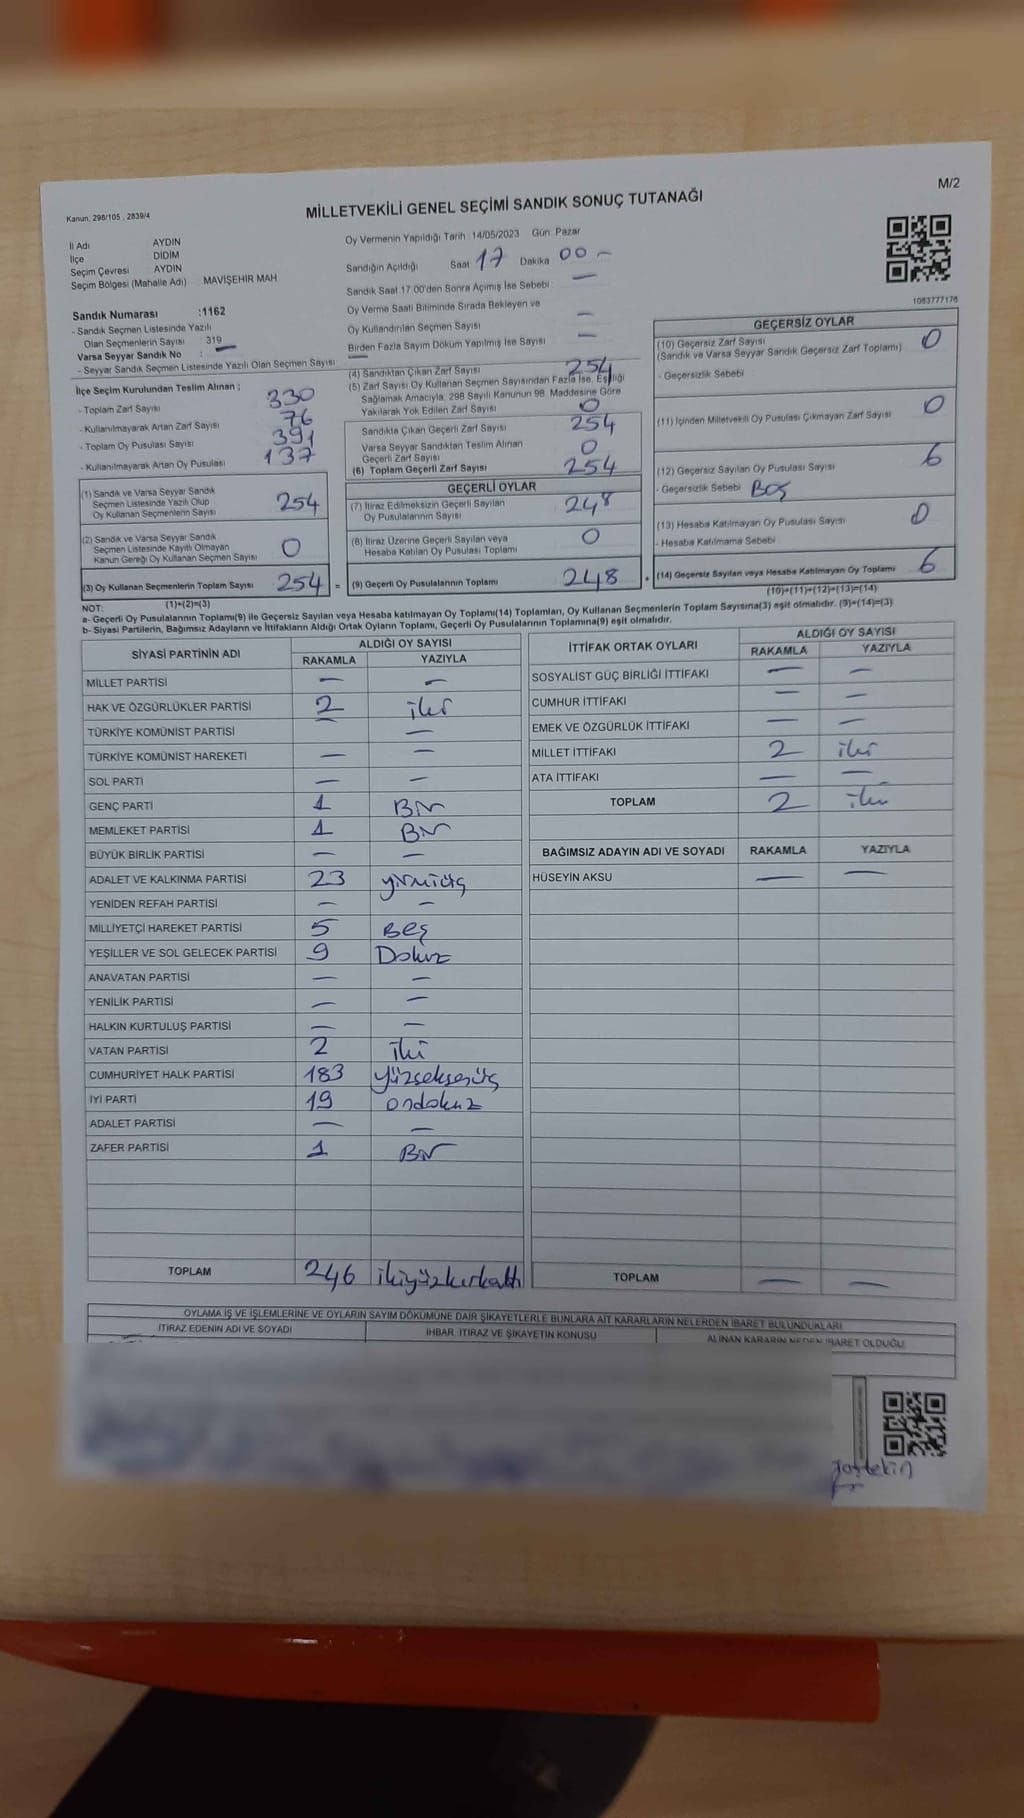 M/2
Kanun, 298/105 , 2839/4
MİLLETVEKİLİ GENEL SEÇİMİ SANDIK SONUÇ TUTANAĞI
İl Adı AYDIN
İlçe DİDİM
Seçim Çevresi AYDIN
Seçim Bölgesi (Mahalle Adı) MAVİŞEHİR MAH
Sandık Numarası :1162
- Sandık Seçmen Listesinde Yazılı
Olan Seçmenlerin Sayısı 319
Varsa Seyyar Sandık No : —
- Seyyar Sandık Seçmen Listesinde Yazılı Olan Seçmen Sayısı —
Oy Vermenin Yapıldığı Tarih : 14/05/2023 Gün Pazar
Sandığın Açıldığı Saat 17 Dakika 00 —
Sandık Saat 17:00'den Sonra Açımış İse Sebebi : —
Oy Verme Saati Bitiminde Sırada Bekleyen ve
Oy Kullandırılan Seçmen Sayısı —
Birden Fazla Sayım Döküm Yapılmış İse Sayısı —
1083777176
İlçe Seçim Kurulundan Teslim Alınan ;
- Toplam Zarf Sayısı 330
- Kullanılmayarak Artan Zarf Sayısı 76
- Toplam Oy Pusulası Sayısı 391
- Kullanılmayarak Artan Oy Pusulası 137
(1) Sandık ve Varsa Seyyar Sandık
Seçmen Listesinde Yazılı Olup
Oy Kullanan Seçmenlerin Sayısı 254
(2) Sandık ve Varsa Seyyar Sandık
Seçmen Listesinde Kayıtlı Olmayan
Kanun Gereği Oy Kullanan Seçmen Sayısı 0
(3) Oy Kullanan Seçmenlerin Toplam Sayısı 254 =
(1)+(2)=(3)
(4) Sandıktan Çıkan Zarf Sayısı 254
(5) Zarf Sayısı Oy Kullanan Seçmen Sayısından Fazla İse, Eşitliği
Sağlamak Amacıyla, 298 Sayılı Kanunun 98. Maddesine Göre
Yakılarak Yok Edilen Zarf Sayısı 0
Sandıkta Çıkan Geçerli Zarf Sayısı 254
Varsa Seyyar Sandıktan Teslim Alınan
Geçerli Zarf Sayısı 0
(6) Toplam Geçerli Zarf Sayısı 254
GEÇERLİ OYLAR
(7) İtiraz Edilmeksizin Geçerli Sayılan
Oy Pusulalarının Sayısı 248
(8) İtiraz Üzerine Geçerli Sayılan veya
Hesaba Katılan Oy Pusulası Toplamı 0
(9) Geçerli Oy Pusulalarının Toplamı 248 +
GEÇERSİZ OYLAR
(10) Geçersiz Zarf Sayısı 0
(Sandık ve Varsa Seyyar Sandık Geçersiz Zarf Toplamı)
- Geçersizlik Sebebi
(11) İçinden Milletvekili Oy Pusulası Çıkmayan Zarf Sayısı 0
(12) Geçersiz Sayılan Oy Pusulası Sayısı 6
- Geçersizlik Sebebi BOŞ
(13) Hesaba Katılmayan Oy Pusulası Sayısı 0
- Hesaba Katılmama Sebebi
(14) Geçersiz Sayılan veya Hesaba Katılmayan Oy Toplamı 6
(10)+(11)+(12)+(13)=(14)
NOT:
a- Geçerli Oy Pusulalarının Toplamı(9) ile Geçersiz Sayılan veya Hesaba katılmayan Oy Toplamı(14) Toplamları, Oy Kullanan Seçmenlerin Toplam Sayısına(3) eşit olmalıdır. (9)+(14)=(3)
b- Siyasi Partilerin, Bağımsız Adayların ve İttifakların Aldığı Ortak Oyların Toplamı, Geçerli Oy Pusulalarının Toplamına(9) eşit olmalıdır.
SİYASİ PARTİNİN ADI ALDIĞI OY SAYISI
RAKAMLA YAZIYLA
MİLLET PARTİSİ — —
HAK VE ÖZGÜRLÜKLER PARTİSİ 2 iki
TÜRKİYE KOMÜNİST PARTİSİ — —
TÜRKİYE KOMÜNİST HAREKETİ — —
SOL PARTİ — —
GENÇ PARTİ 1 Bir
MEMLEKET PARTİSİ 1 Bir
BÜYÜK BİRLİK PARTİSİ — —
ADALET VE KALKINMA PARTİSİ 23 yirmiüç
YENİDEN REFAH PARTİSİ — —
MİLLİYETÇİ HAREKET PARTİSİ 5 Beş
YEŞİLLER VE SOL GELECEK PARTİSİ 9 Dokuz
ANAVATAN PARTİSİ — —
YENİLİK PARTİSİ — —
HALKIN KURTULUŞ PARTİSİ — —
VATAN PARTİSİ 2 iki
CUMHURİYET HALK PARTİSİ 183 yüzseksenüç
İYİ PARTİ 19 ondokuz
ADALET PARTİSİ — —
ZAFER PARTİSİ 1 Bir
TOPLAM 246 ikiyüzkırkaltı
İTTİFAK ORTAK OYLARI ALDIĞI OY SAYISI
RAKAMLA YAZIYLA
SOSYALİST GÜÇ BİRLİĞİ İTTİFAKI — —
CUMHUR İTTİFAKI — —
EMEK VE ÖZGÜRLÜK İTTİFAKI — —
MİLLET İTTİFAKI 2 iki
ATA İTTİFAKI — —
TOPLAM 2 iki
BAĞIMSIZ ADAYIN ADI VE SOYADI RAKAMLA YAZIYLA
HÜSEYİN AKSU — —
TOPLAM — —
OYLAMA İŞ VE İŞLEMLERİNE VE OYLARIN SAYIM DÖKÜMÜNE DAİR ŞİKAYETLERLE BUNLARA AİT KARARLARIN NELERDEN İBARET BULUNDUKLARI
İTİRAZ EDENİN ADI VE SOYADI İHBAR, İTİRAZ VE ŞİKAYETİN KONUSU ALINAN KARARIN NEDEN İBARET OLDUĞU